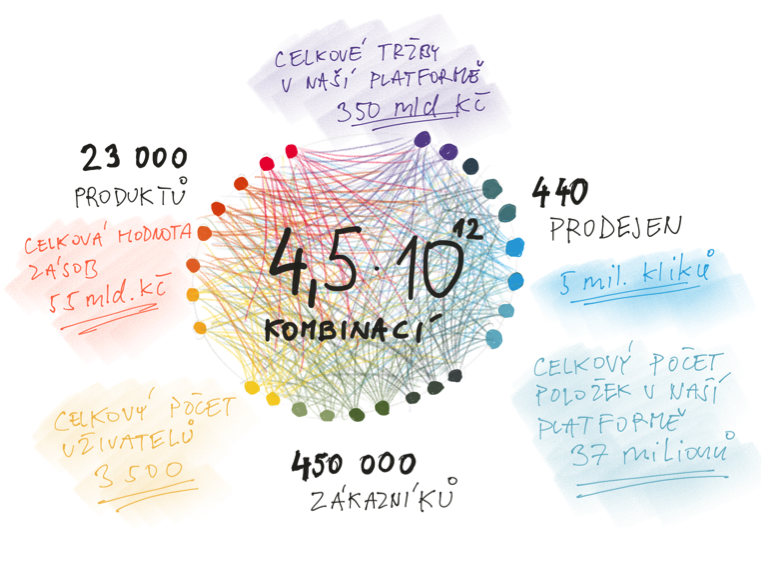 CELKOVÉ TRŽBY
V NAŠÍ PLATFORMĚ
350 mld Kč
23 000
PRODUKTŮ
440
PRODEJEN
CELKOVÁ HODNOTA
ZÁSOB
55 mld. Kč
4,5 · 10¹²
KOMBINACÍ
5 mil. kliků
CELKOVÝ POČET
UŽIVATELŮ
3 500
CELKOVÝ POČET
POLOŽEK V NAŠÍ
PLATFORMĚ
37 milionů
450 000
ZÁKAZNÍKŮ